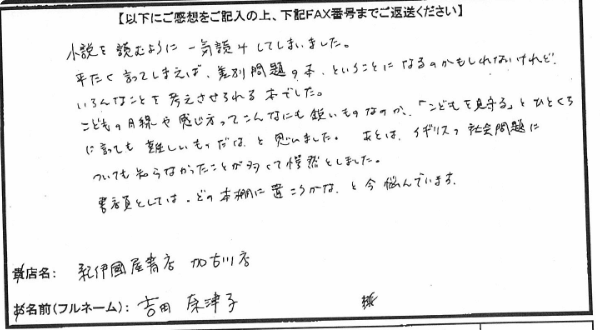 【以下にご感想をご記入の上、下記FAX番号までご返送ください】
小説を読むように一気読みしてしまいました。
平たく言ってしまえば、差別問題の本、ということになるのかもしれないけれど、
いろんなことを考えさせられる本でした。
こどもの目線や感じ方ってこんなにも鋭いものなのか、「こどもを見守る」とひとくち
に言っても難しいものだなぁと思いました。 あとは、イギリスの社会問題に
ついても知らなかったことが多くて愕然としました。
書店員としては、どの本棚に置こうかな、と今悩んでいます。
貴店名: 紀伊國屋書店 加古川店
お名前(フルネーム): 吉田 奈津子 様